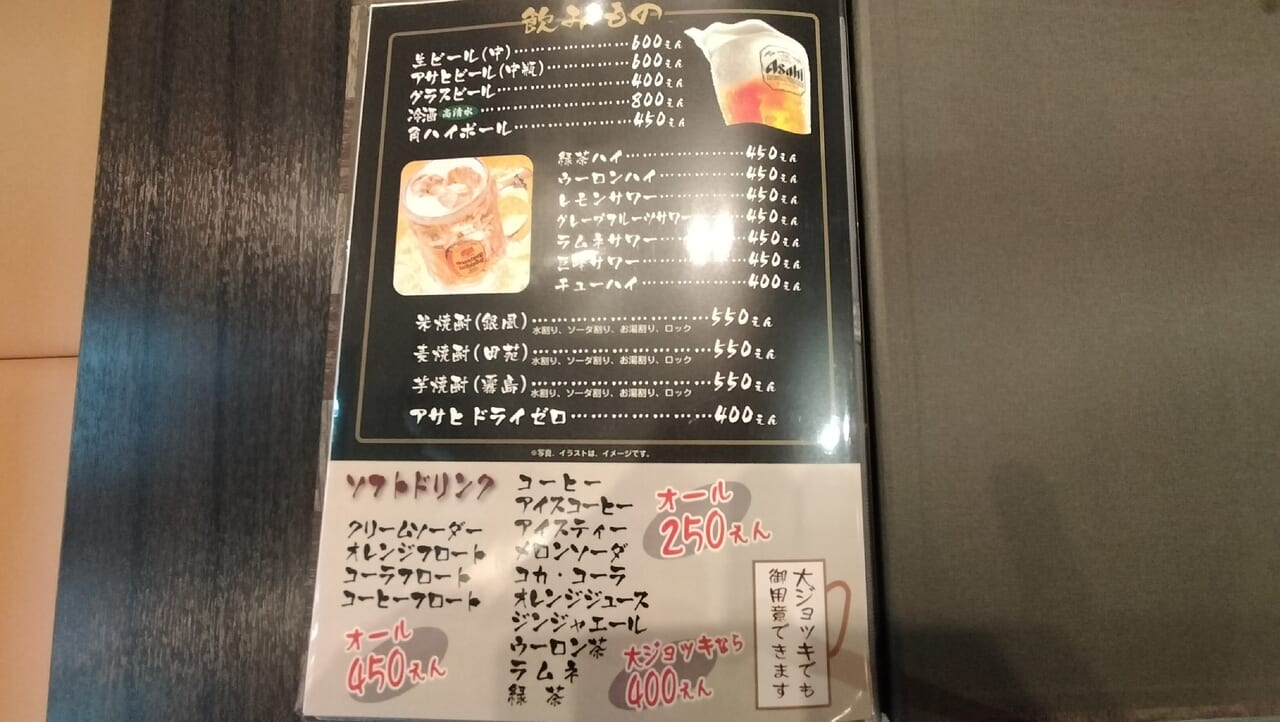 飲みもの
生ビール(中)………………600えん
アサヒビール(中瓶)…………600えん
グラスビール………………400えん
冷酒 高清水………………800えん
角ハイボール………………450えん
Asahi
緑茶ハイ………………450えん
ウーロンハイ………………450えん
レモンサワー………………450えん
グレープフルーツサワー………450えん
ラムネサワー………………450えん
巨峰サワー………………450えん
チューハイ………………400えん
米焼酎(銀風)………………550えん
水割り、ソーダ割り、お湯割り、ロック
麦焼酎(田苑)………………550えん
水割り、ソーダ割り、お湯割り、ロック
芋焼酎(霧島)………………550えん
水割り、ソーダ割り、お湯割り、ロック
アサヒドライゼロ………………400えん
※写真、イラストは、イメージです。
ソフトドリンク
クリームソーダー
オレンジフロート
コーラフロート
コーヒーフロート
オール
450えん
コーヒー
アイスコーヒー
アイスティー
メロンソーダ
コカ・コーラ
オレンジジュース
ジンジャエール
ウーロン茶
ラムネ
緑茶
オール
250えん
大ジョッキなら
400えん
大ジョッキでも
御用意できます